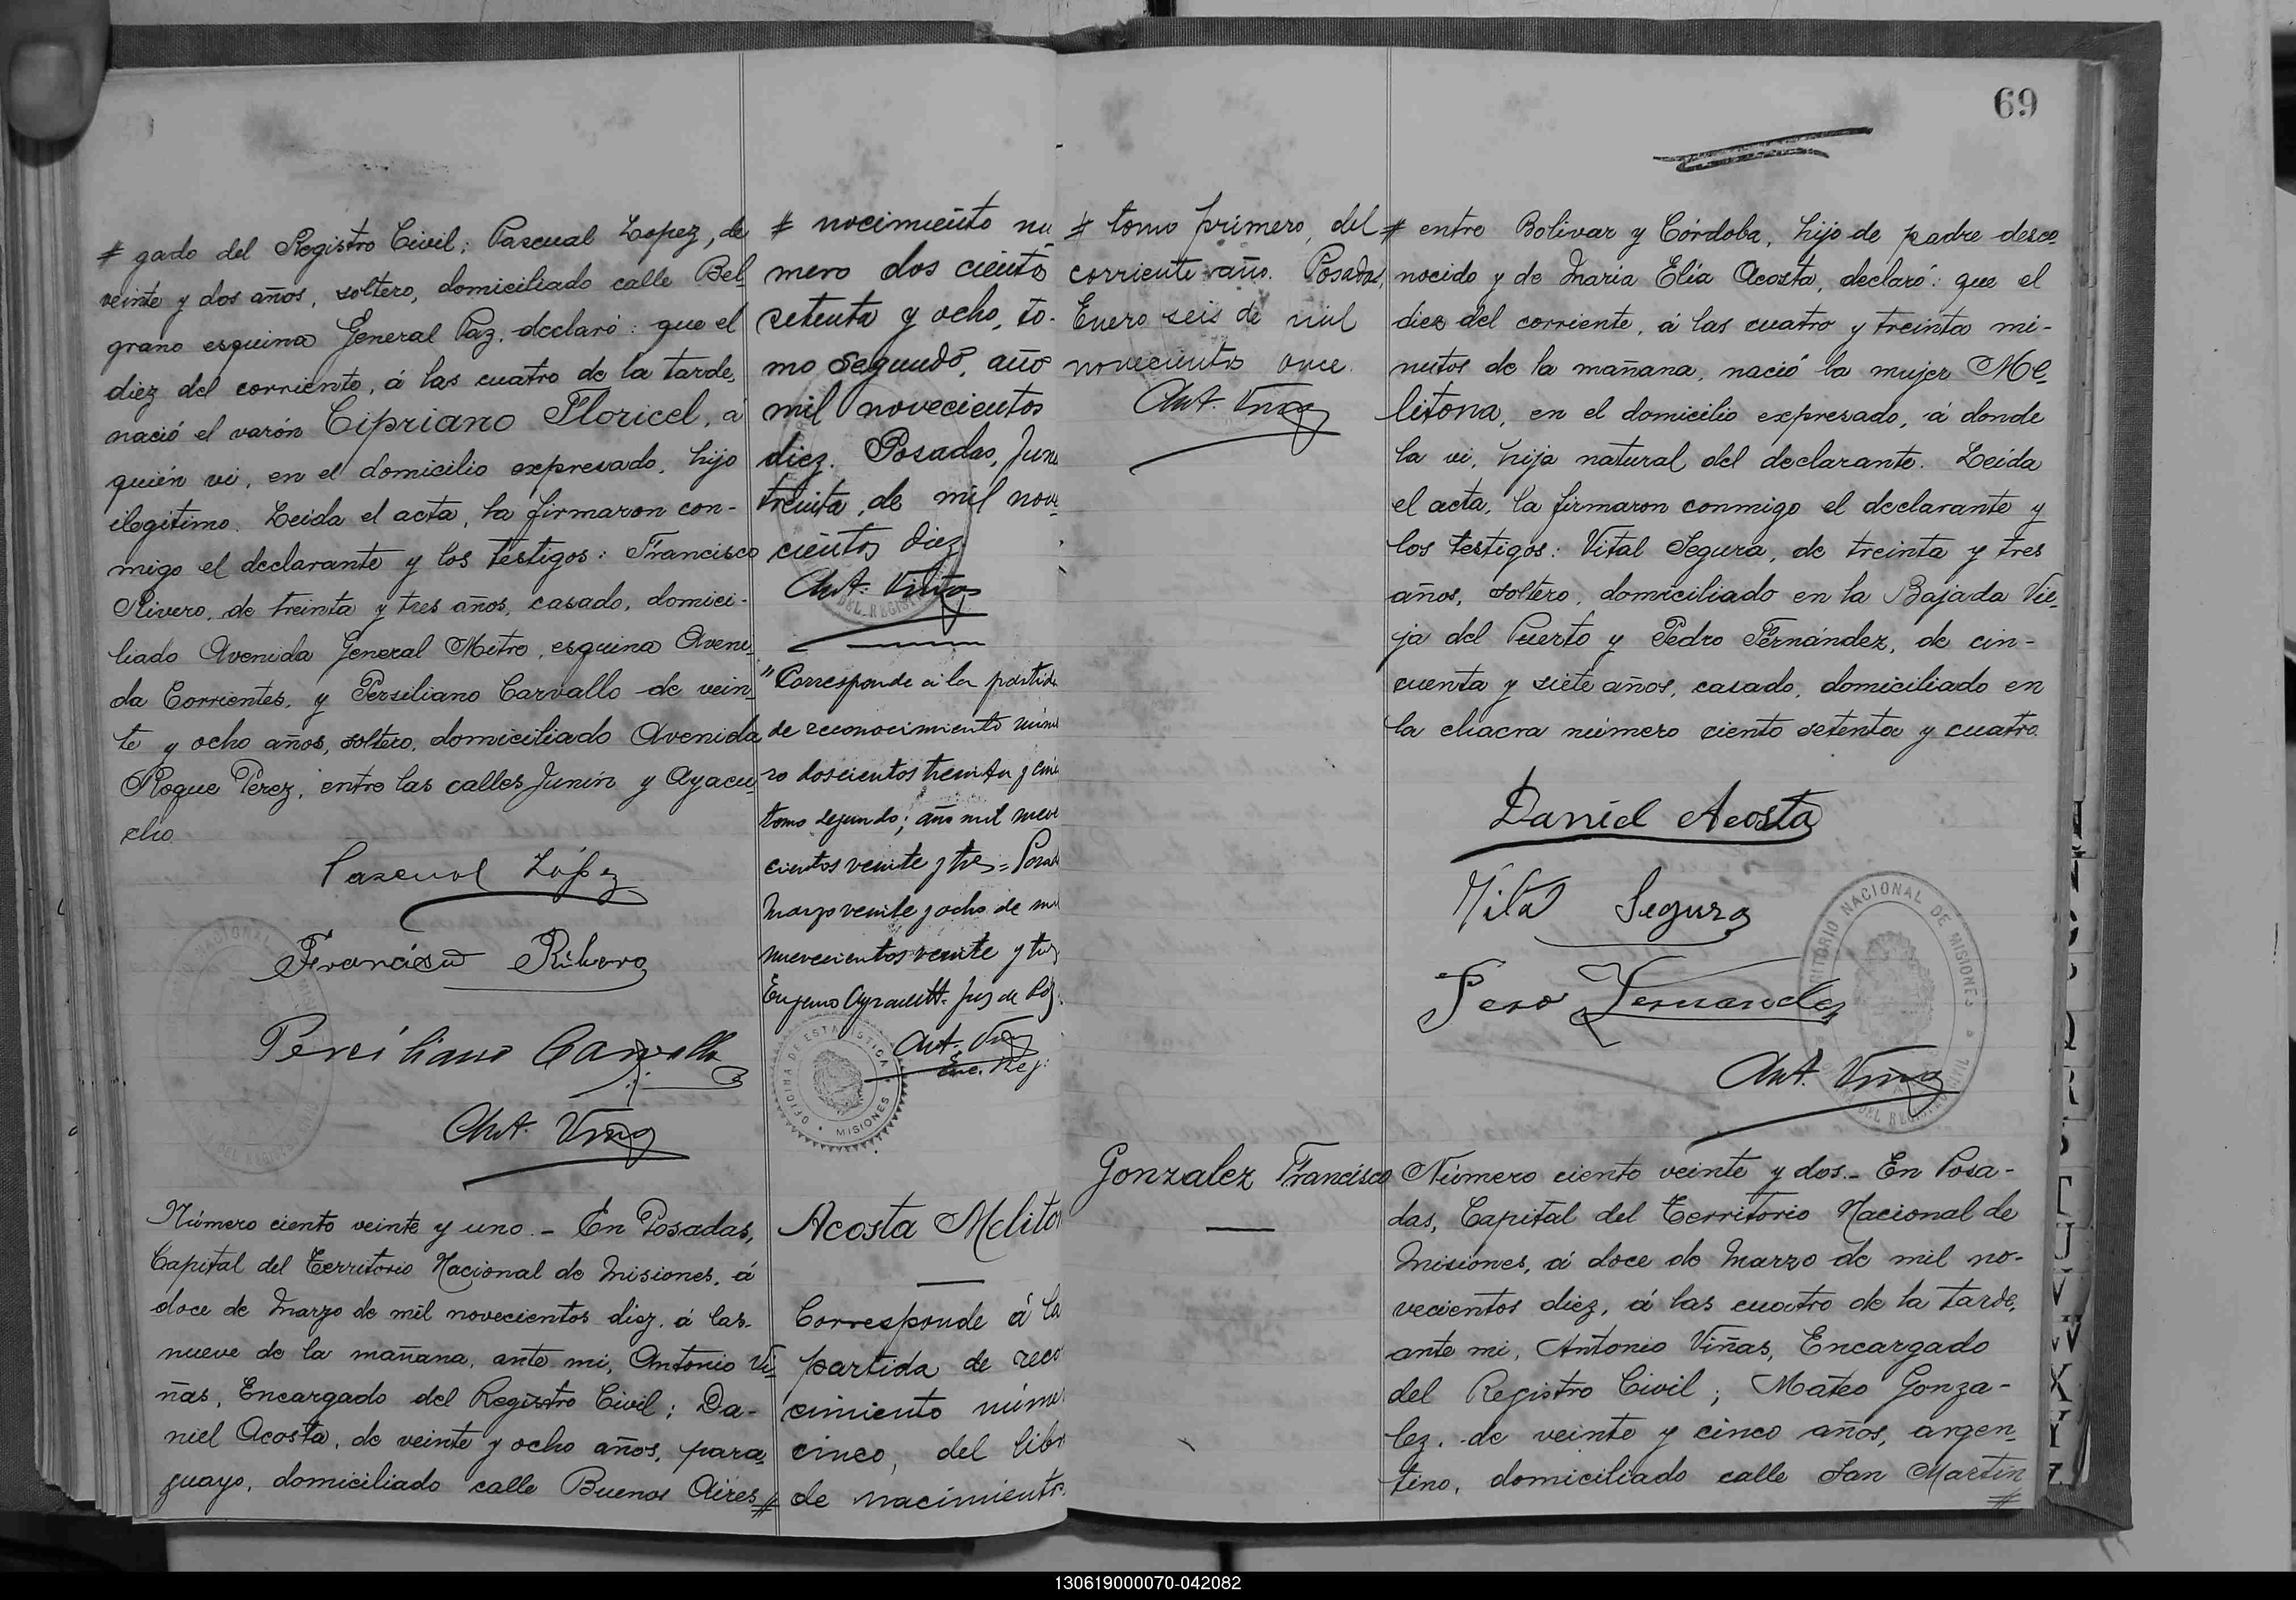 # gado del Registro Civil; Pascual Lopez, de
veinte y dos años, soltero, domiciliado calle Bel
grano esquina General Paz, declaró: que el
diez del corriente, á las cuatro de la tarde,
nació el varón Cipriano Floricel, á
quién vi, en el domicilio expresado, hijo
ilegitimo. Leida el acta, la firmaron con-
migo el declarante y los testigos: Francisco
Rivero, de treinta y tres años, casado, domici-
liado Avenida General Mitre, esquina Aveni
da Corrientes, y Persiliano Carvallo de vein
te y ocho años, soltero, domiciliado Avenida
Roque Perez, entre las calles Junin y Ayacu
cho.
Pascual López
Francisco Ribero
Perciliano Carvallo
Ant. Viñas
Número ciento veinte y uno.- En Posadas,
Capital del Territorio Nacional de Misiones, á
doce de Marzo de mil novecientos diez, á las
nueve de la mañana, ante mi, Antonio Vi
ñas, Encargado del Registro Civil; Da-
niel Acosta, de veinte y ocho años, para
guayo, domiciliado calle Buenos Aires #
# nocimiento nu
mero dos ciento
setenta y ocho, to-
mo segundo, año
mil novecientos
diez. Posadas, Juni
treinta, de mil nove
cientos diez
Ant. Viñas
DEL REGISTRO
"Corresponde á la partida
de reconocimiento núme
ro doscientos treinta y cin
tomo segundo; año mil nueve
cientos veinte y tres = Posad
Marzo veinte y ocho de mil
nuevecientos veinte y tres
Ant. Viñas
Enc. Reg.
OFICINA DE ESTADISTICA
MISIONES
Acosta Meliton
Corresponde á la
partida de reco
cimiento núme
cinco, del libr
de nacimientos
# tomo primero, del
corriente año. Posadas,
Enero seis de mil
novecientos once.
Ant. Viñas
69
# entre Bolivar y Córdoba, hijo de padre desco
nocido y de Maria Elia Acosta, declaró: que el
diez del corriente, á las cuatro y treinta mi-
nutos de la mañana, nació la mujer Me
litona, en el domicilio expresado, á donde
la vi, hija natural del declarante. Leida
el acta, la firmaron conmigo el declarante y
los testigos: Vital Segura, de treinta y tres
años, soltero, domiciliado en la Bajada Vie
ja del Puerto y Pedro Fernández, de cin-
cuenta y siete años, casado, domiciliado en
la chacra número ciento setenta y cuatro.
Daniel Acosta
Vital Segura
Pero Fernandez
Ant. Viñas
TERRITORIO NACIONAL DE MISIONES
OFICINA DEL REGISTRO CIVIL
Gonzalez Francisco
Número ciento veinte y dos.- En Posa-
das, Capital del Territorio Nacional de
Misiones, á doce de Marzo de mil no-
vecientos diez, á las cuatro de la tarde,
ante mi, Antonio Viñas, Encargado
del Registro Civil; Mateo Gonza-
lez, de veinte y cinco años, argen
tino, domiciliado calle San Martin
#
130619000070-042082